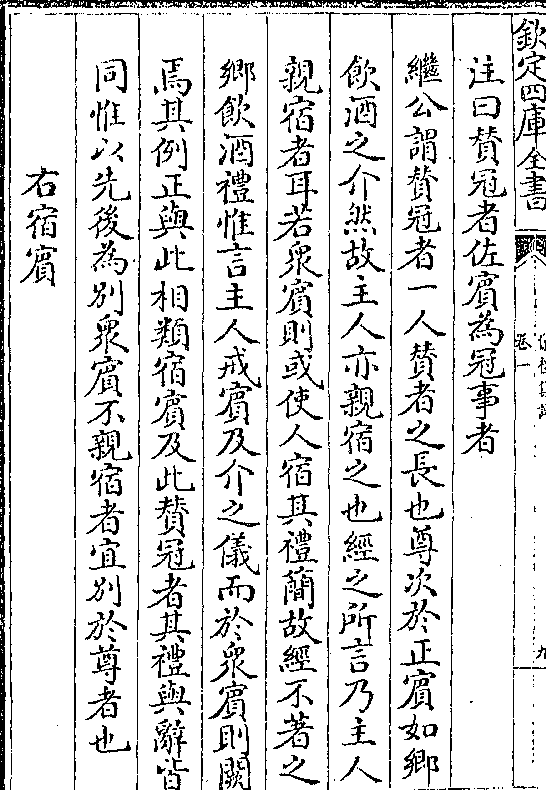 欽定四庫全書
卷一
九
注曰賛冠者佐賓為冠事者
繼公謂賛冠者一人賛者之長也尊次於正賓如鄉
飲酒之介然故主人亦親宿之也經之所言乃主人
親宿者耳若衆賓則或使人宿其禮簡故經不著之
鄉飲酒禮惟言主人戒賓及介之儀而於衆賓則闕
焉其例正與此相類宿賓及此賛冠者其禮與辭皆
同惟以先後為別衆賓不親宿者宜別於尊者也
右宿賓